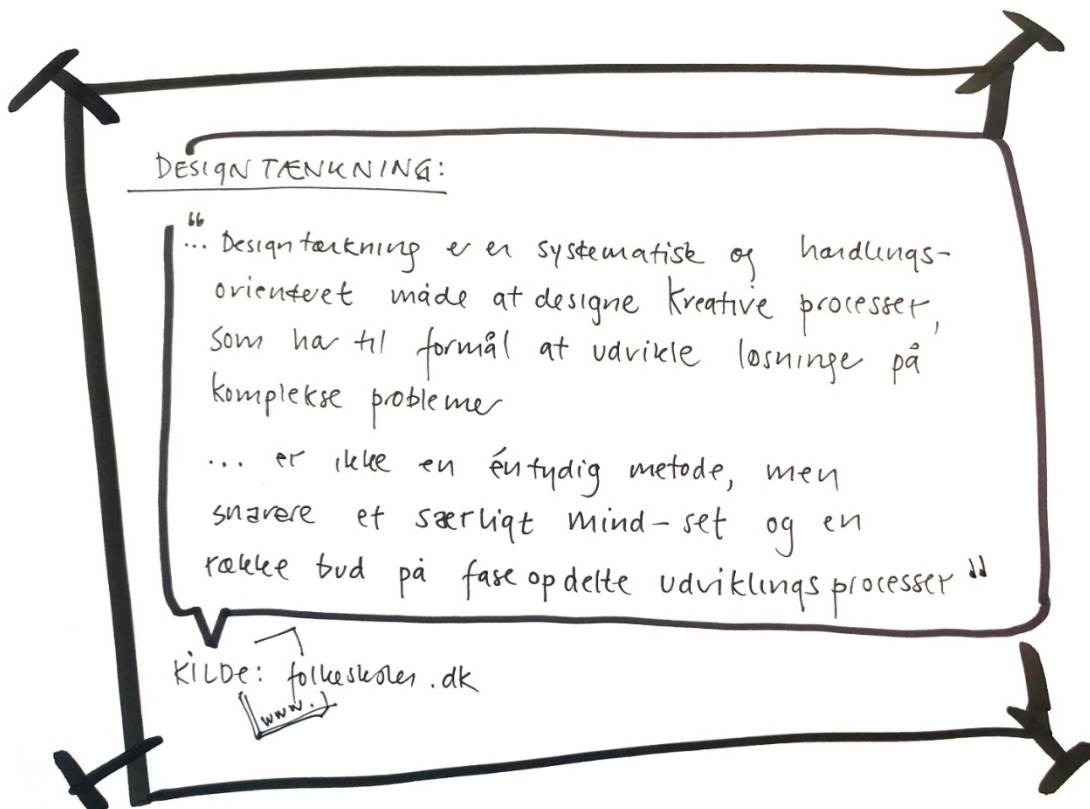 DESIGN TÆNKNING:
“... Designtænkning er en systematisk og handlings-
orienteret måde at designe kreative processer,
som har til formål at udvikle løsninger på
komplekse problemer
... er ikke en éntydig metode, men
snarere et særligt mind-set og en
række bud på faseopdelte udviklingsprocesser”
KILDE: folkeskolen.dk
www.